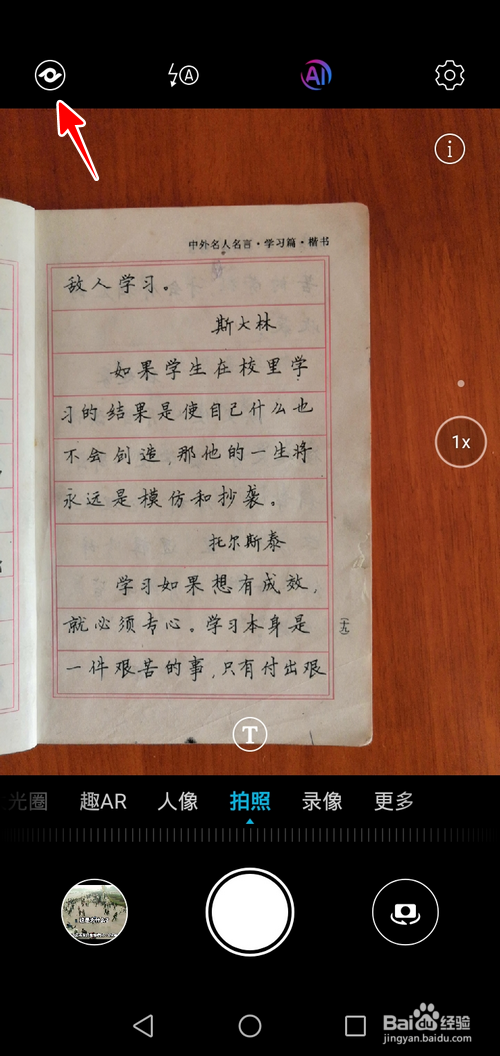 A
AI
i
中外名人名言·学习篇·楷书
敌人学习。
斯大林
如果学生在校里学
习的结果是使自己什么也
不会创造,那他的一生将
永远是模仿和抄袭。
托尔斯泰
学习如果想有成效,
就必须专心。学习本身是
一件艰苦的事,只有付出艰
(十九)
1x
T
光圈
趣AR
人像
拍照
录像
更多
Baidu经验
jingyan.baidu.com